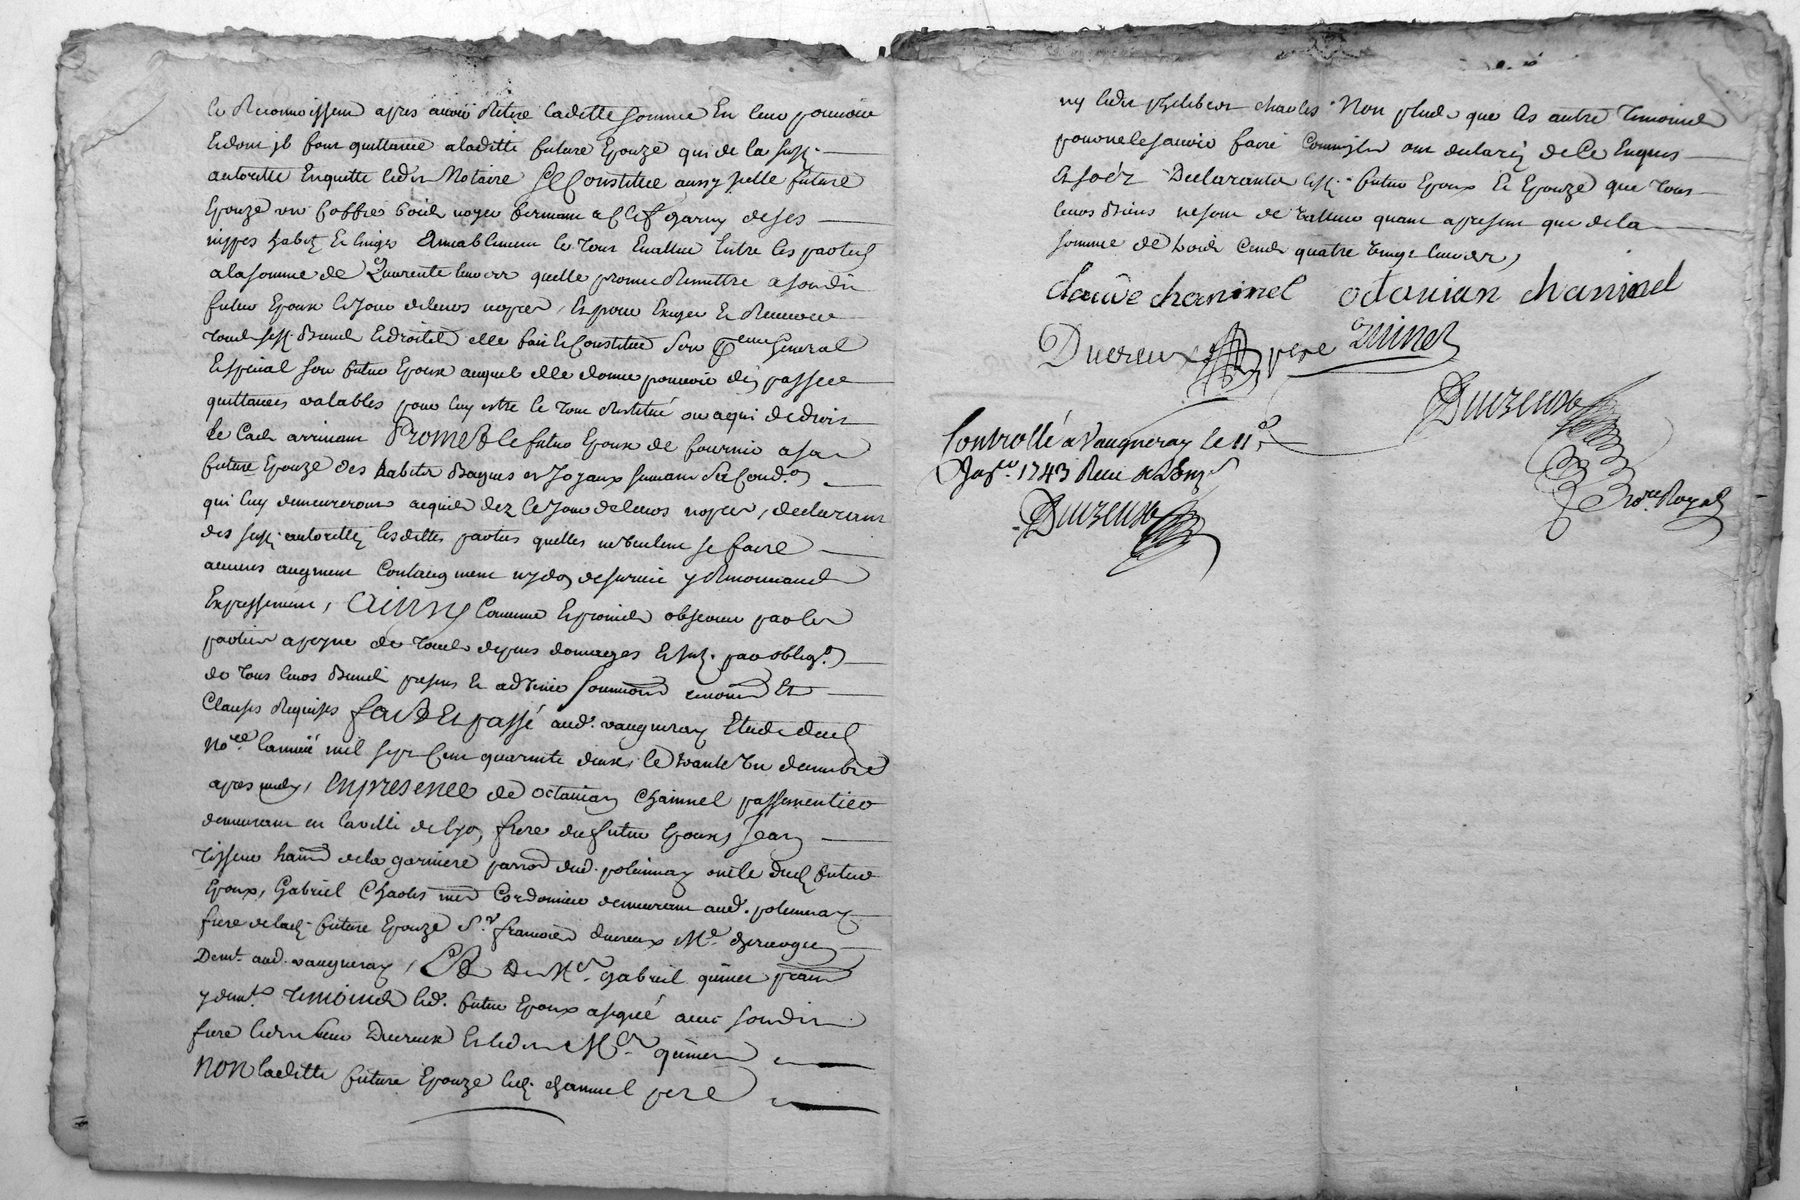 le Reconnoissent apres avoir Retiré ladette somme En leur pouvoir
Et dont jls font quittance a laditte future Epouze qui de la susd.
autoritté Enquitte ledit Notaire Se Constitue aussy jcelle future
Epouze un Coffre bois noyer fermant a Clef garny de ses
nippes habitz Et linges amiablement le tout Evallué Entre les parties
a la somme de quarente livres quelle promet Remettre a sondit
futur Epoux le jour de leurs nopces, Et pour Exiger Et Recevoir
tous sesd. Biens Et droits elle fait Et Constitue son General
Et special son futur Epoux auquel elle donne pouvoir d'en passer
quittances valables pour luy estre le tout Restitué ou a qui de droit
le Cas arrivant Promet le futur Epoux de fournir a sa
future Epouze des habits Bagues et Joyaux suivant sa Condon
qui luy demeureront acquis dez le jour de leurs nopces, declarant
des susd. autorittez lesdittes parties quelles ne veulent se faire
aucuns augment Contaugment ny don de survie y Renonceant
Expressement, Ainsy Comme Et promis observer par les
parties a peyne de tous depens domages Et jnt. par oblign
de tous leurs Biens presens Et advenir soumissions renons Et
Clauses Requises fait Et passé aud. vaugneray Etude dud.
Nore. l'année mil sept Cent quarente deux, le trante un decembre
apres midy, En presence de octavian Chaninel passementier
demeurant en la ville de lyon, frere du futur Epoux, Jean
tisseur habt. de la garniere parroisse dud. polionnay oncle dud. futur
Epoux, Gabriel Charles me Cordonnier demeurant aud. polionnay
frere de lad. future Epouze Sr. francois ducreux Me. Chirurgien
Demt. aud. vaugneray, Et De Mr. gabriel quinet
y demt. temoins led. futur Epoux a signé avec sondit
frere ledit sieur Ducreux Et ledit Mr. quinet
Non laditte future Epouze led. Chaninel pere
ny ledit phelibert Charles Non plus que les autre temoins
pour ne le sçavoir faire Comme jls ont declaré de Ce Enquis
Et Declarants lesd. futur Epoux Et Epouze que tous
leurs Biens ne sont de valleur quant a present que de la
somme de trois Cents quatre vingt livres,
claude chaninel octavian chaninel
Ducreux pere Quinet
Duizeux
Controllé a Vaugneray le 11e
Janer 1743 Receu
Duizeux
Nore. Royal